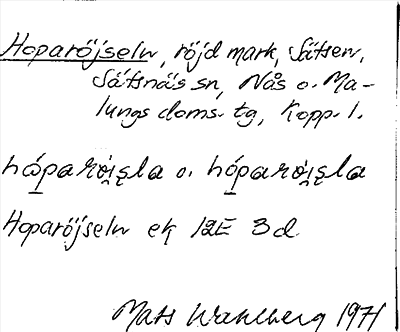 Hoparöjseln, röjd mark, Sätsen,
Sätsnäs sn, Nås o. Ma-
lungs doms. tg, Kopp. l.
hóparöi̯sla o. hóparöi̯sla
Hoparöjseln ek 12E 3d
Mats Wahlberg 1971